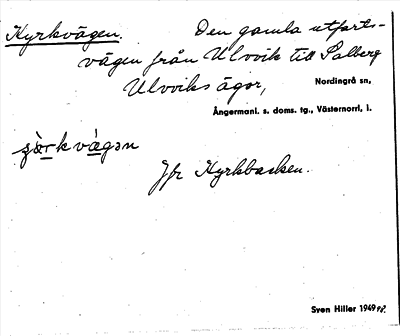 Kyrkvägen. Den gamla utfarts-
vägen från Ulvvik till Salberg
Ulvviks ägor, Nordingrå sn,
Ångermanl. s. doms. tg., Västernorrl. l.
Jfr Kyrkbacken.
Sven Hiller 1949